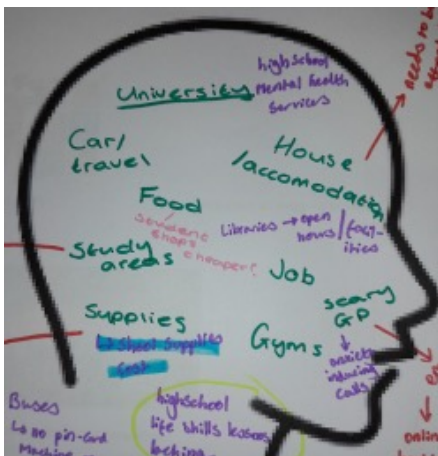 highschool
Mental health
services
University
needs to be
Car/
travel
House
/accomodation
Food
student
shops
cheaper?
Libraries → open
hours/facil-
ities
Study
areas
Job
scary
GP
Supplies
↳ School supplies
cost
Gyms
↓
anxiety
inducing
calls
Buses
↳ no pin-card
Machine
highschool
life skills lessons
being
online